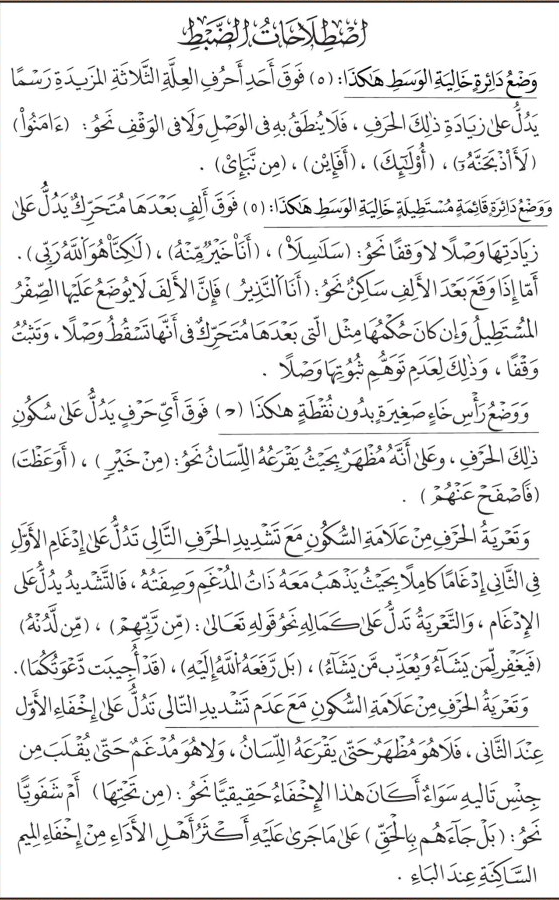 اصْطِلَاحَاتُ الضَّبْطِ
وَضْعُ دَائِرَةٍ خَالِيَةِ الوَسَطِ هَٰكَذَا: (٥) فَوْقَ أَحَدِ أَحْرُفِ العِلَّةِ الثَّلَاثَةِ المَزِيدَةِ رَسْمًا
يَدُلُّ عَلىٰ زِيَادَةِ ذٰلِكَ الحَرْفِ ، فَلَا يُنْطَقُ بِهِ فِى الوَصْلِ وَلَا فِى الوَقْفِ نَحْوُ: (ءَامَنُوا۟)
(لَأَا۟ذْبَحَنَّهُۥٓ) ، (أُو۟لَٰٓئِكَ) ، (أَفَإِي۟ن) ، (مِن نَّبَإِى۟) .
وَوَضْعُ دَائِرَةٍ قَائِمَةٍ مُسْتَطِيلَةٍ خَالِيَةِ الوَسَطِ هَٰكَذَا: (٥) فَوْقَ أَلِفٍ بَعْدَهَا مُتَحَرِّكٌ يَدُلُّ عَلىٰ
زِيَادَتِهَا وَصْلًا لَا وَقْفًا نَحْوُ: (سَلَٰسِلَا۠) ، (أَنَا۠ خَيْرٌ مِّنْهُ) ، (لَّٰكِنَّا۠ هُوَ ٱللَّهُ رَبِّى) .
أَمَّا إِذَا وَقَعَ بَعْدَ الأَلِفِ سَاكِنٌ نَحْوُ: (أَنَا ٱلنَّذِيرُ) فَإِنَّ الأَلِفَ لَا يُوضَعُ عَلَيْهَا الصِّفْرُ
المُسْتَطِيلُ وَإِن كَانَ حُكْمُهَا مِثْلَ الَّتِى بَعْدَهَا مُتَحَرِّكٌ فِى أَنَّهَا تَسْقُطُ وَصْلًا ، وَتَثْبُتُ
وَقْفًا ، وَذٰلِكَ لِعَدَمِ تَوَهُّمِ ثُبُوتِهَا وَصْلًا .
وَوَضْعُ رَأْسِ خَاءٍ صَغِيرَةٍ بِدُونِ نُقْطَةٍ هَٰكَذَا (ح) فَوْقَ أَيِّ حَرْفٍ يَدُلُّ عَلىٰ سُكُونِ
ذٰلِكَ الحَرْفِ ، وَعَلىٰ أَنَّهُ مُظْهَرٌ بِحَيْثُ يَقْرَعُهُ اللِّسَانُ نَحْوُ: (مِنْ خَيْرٍ) ، (أَوَعَظْتَ)
(فَٱصْفَحْ عَنْهُمْ) .
وَتَعْرِيَةُ الحَرْفِ مِنْ عَلَامَةِ السُّكُونِ مَعَ تَشْدِيدِ الحَرْفِ التَّالِى تَدُلُّ عَلىٰ إِدْغَامِ الأَوَّلِ
فِى الثَّانِى إِدْغَامًا كَامِلًا بِحَيْثُ يَذْهَبُ مَعَهُ ذَاتُ المُدْغَمِ وَصِفَتُهُ ، فَالتَّشْدِيدُ يَدُلُّ عَلىٰ
الإِدْغَامِ ، وَالتَّعْرِيَةُ تَدُلُّ عَلىٰ كَمَالِهِ نَحْوُ قَوْلِهِ تَعَالىٰ: (مِّن رَّبِّهِمْ) ، (مِن لَّدُنْهُ)
(فَيَغْفِرُ لِمَن يَشَآءُ وَيُعَذِّبُ مَن يَشَآءُ) ، (بَل رَّفَعَهُ ٱللَّهُ إِلَيْهِ) ، (قَدْ أُجِيبَت دَّعْوَتُكُمَا) .
وَتَعْرِيَةُ الحَرْفِ مِنْ عَلَامَةِ السُّكُونِ مَعَ عَدَمِ تَشْدِيدِ التَّالِى تَدُلُّ عَلىٰ إِخْفَاءِ الأَوَّلِ
عِنْدَ الثَّانِى ، فَلَا هُوَ مُظْهَرٌ حَتَّىٰ يَقْرَعَهُ اللِّسَانُ ، وَلَا هُوَ مُدْغَمٌ حَتَّىٰ يُقْلَبَ مِن
جِنْسِ تَالِيهِ سَوَاءٌ أَكَانَ هٰذَا الإِخْفَاءُ حَقِيقِيًّا نَحْوُ: (مِن تَحْتِهَا) أَمْ شَفَوِيًّا
نَحْوُ: (بَلْ جَآءَهُم بِٱلْحَقِّ) عَلىٰ مَا جَرىٰ عَلَيْهِ أَكْثَرُ أَهْلِ الأَدَاءِ مِنْ إِخْفَاءِ المِيمِ
السَّاكِنَةِ عِندَ البَاءِ .